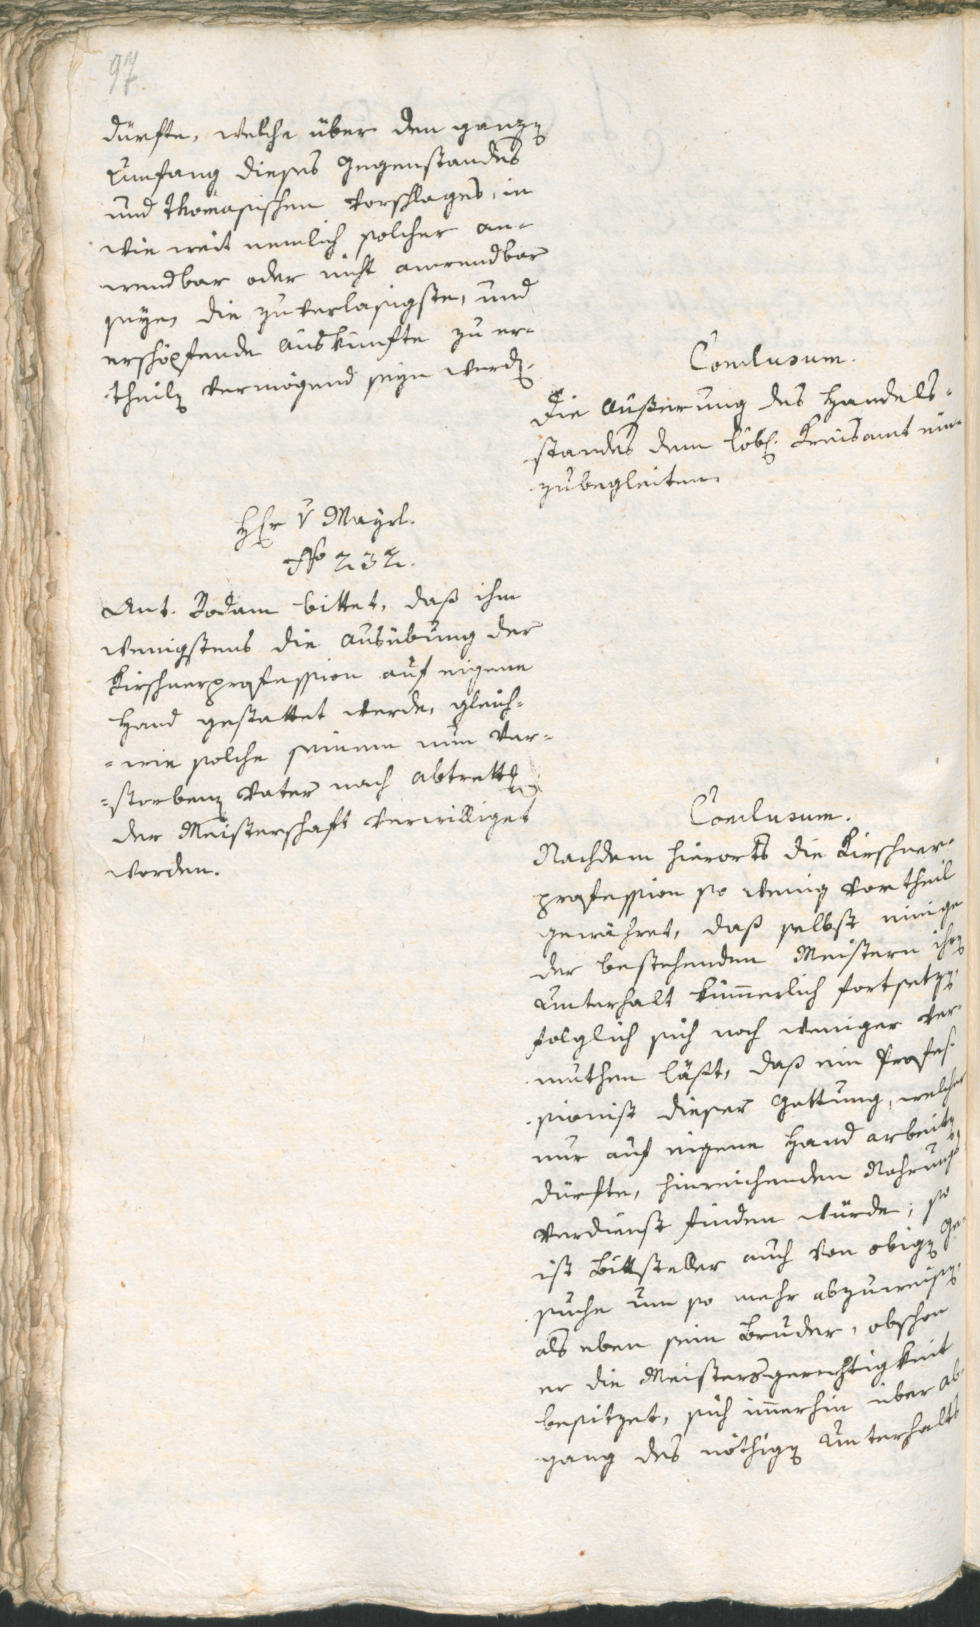 97.
dürfte, welche über den ganzen
Umfang dieses Gegenstandes
und Thomasischen Vorschlages, in
wie weit nemlich solcher an-
wendbar oder nicht anwendbar
seye, die zuverlasigste, und
erschöpfende Auskünfte zu er-
theilen vermögend seyn werden.
Conclusum.
Die Äußerung des Handels-
standes dem löbl. Kreisamt ein-
zubegleiten.
Hr v Mayrl.
No 232.
Ant. Rodam bittet, daß ihm
wenigstens die Ausübung der
Kirschnerprofession auf eigene
Hand gestattet werde, gleich-
=wie solche seinem nun ver=
=storbenen Vater nach Abtrettung
der Meisterschaft verwilliget
worden.
Conclusum.
Nachdem hierorts die Kirschner-
profession so wenig Vortheil
gewähret, daß selbst einige
der bestehenden Meistern ihren
Unterhalt kümmerlich fortsetzen,
folglich sich noch weniger ver-
muthen läßt, daß ein Profes-
sionist dieser Gattung, welcher
nur auf eigene Hand arbeiten
dürfte, hinreichenden Nahrungs
Verdienst finden würde; so
ist Bittsteller auch von obigen Ge-
suche um so mehr abzuweisen,
als eben sein Bruder, obschon
er die Meistersgerechtigkeit
besitzet, sich immerhin über Ab-
gang des nöthigen Unterhalts